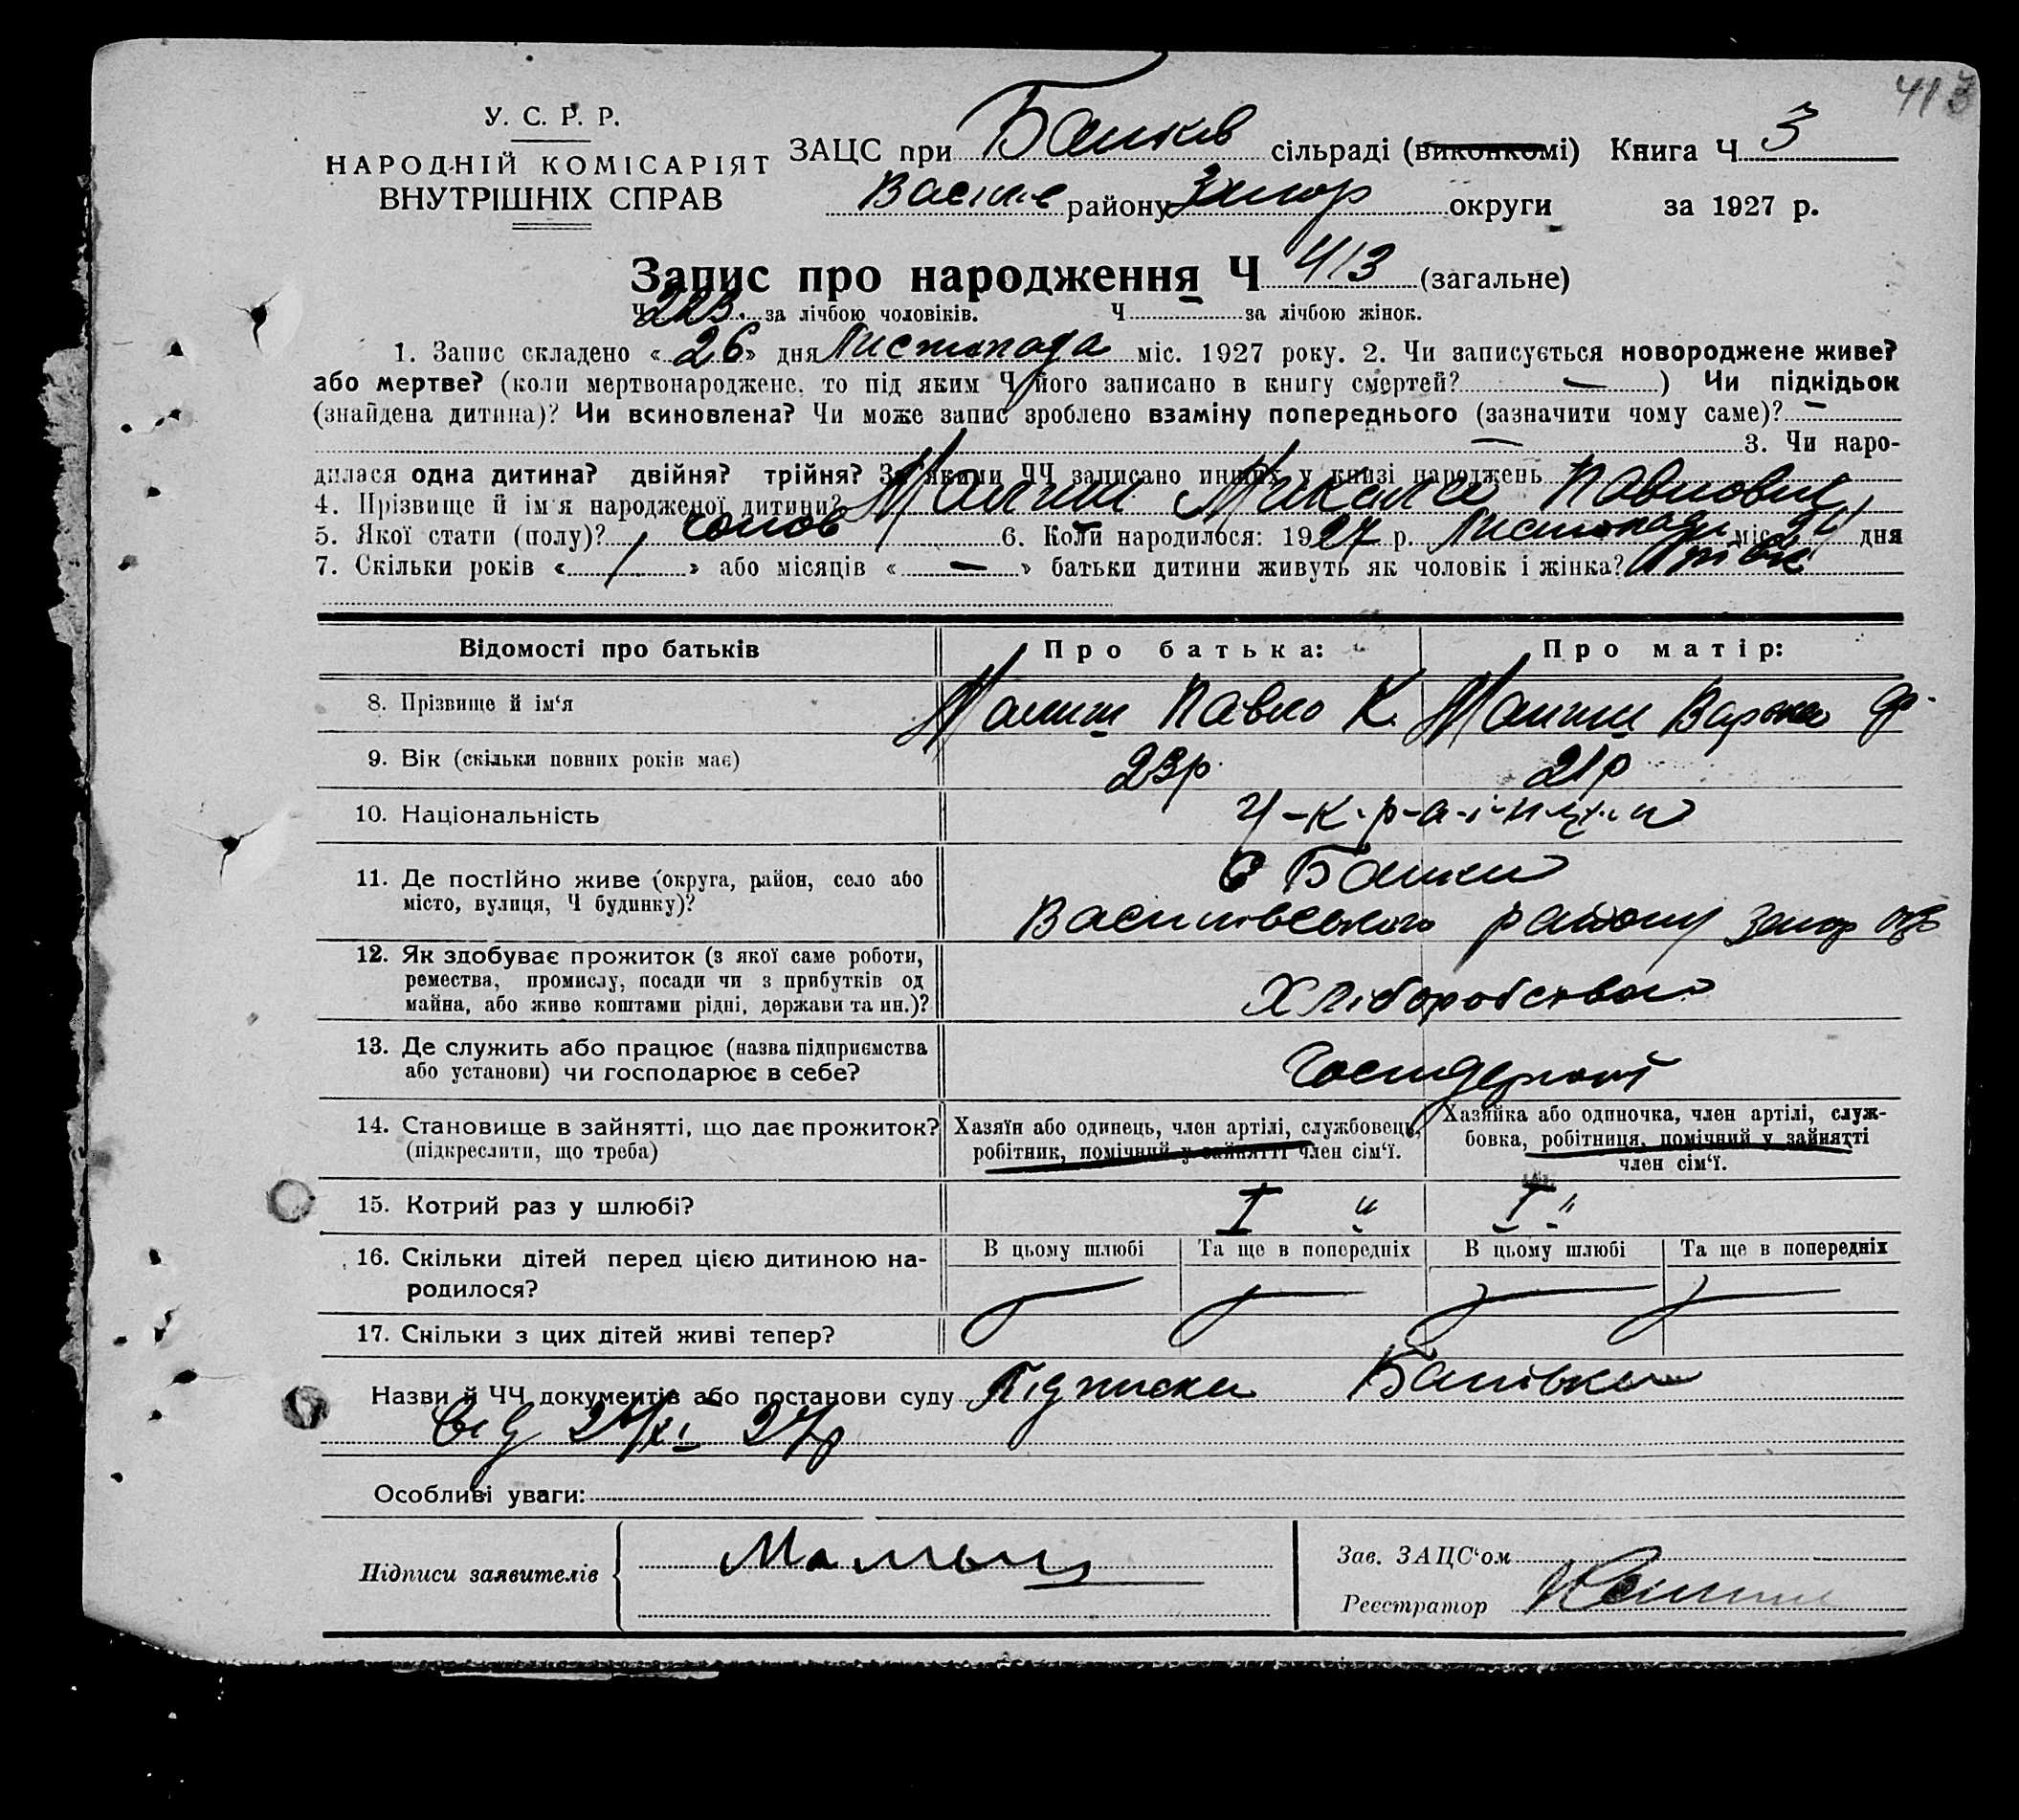 413
У. С. Р. Р.
НАРОДНІЙ КОМІСАРІЯТ
ВНУТРІШНІХ СПРАВ
ЗАЦС при сільраді (виконкомі) Книга Ч 3
Васил району Запор округи за 1927 р.
Запис про народження Ч 413 (загальне)
Ч 223. за лічбою чоловіків. Ч — за лічбою жінок.
1. Запис складено « 26 » дня Листопада міс. 1927 року. 2. Чи записується новороджене живе?
або мертве? (коли мертвонароджене, то під яким Ч його записано в книгу смертей? — ) Чи підкідьок
(знайдена дитина)? Чи всиновлена? Чи може запис зроблено взаміну попереднього (зазначити чому саме)? —
— 3. Чи наро-
дилася одна дитина? двійня? трійня? За якими ЧЧ записано инших у книзі народжень
4. Прізвище й ім'я народженої дитини? Малиш Микола Павлович
5. Якої стати (полу)? чолов 6. Коли народилося: 1927 р. Листопада міс. 24 дня
7. Скільки років « / » або місяців « — » батьки дитини живуть як чоловік і жінка? 1 рік
Відомості про батьків Про батька: Про матір:
8. Прізвище й ім'я Малиш Павло К. Малиш Варька Ф.
9. Вік (скільки повних років має) 23р. 21р
10. Національність У-к-р-а-ї-н-ц-і
11. Де постійно живе (округа, район, село або
місто, вулиця, Ч будинку)?
Василівського району Запор окр
12. Як здобуває прожиток (з якої саме роботи,
ремества, промислу, посади чи з прибутків од
майна, або живе коштами рідні, держави та ин.)? Хліборобство
13. Де служить або працює (назва підприємства
або установи) чи господарює в себе?
14. Становище в зайнятті, що дає прожиток?
(підкреслити, що треба)
Хазяїн або одинець, член артілі, службовець,
робітник, помічний у зайнятті член сім'ї.
Хазяйка або одиночка, член артілі, служ-
бовка, робітниця, помічний у зайнятті
член сім'ї.
15. Котрий раз у шлюбі? I " I "
16. Скільки дітей перед цією дитиною на-
родилося?
В цьому шлюбі Та ще в попередніх В цьому шлюбі Та ще в попередніх
17. Скільки з цих дітей живі тепер?
Назви й ЧЧ документів або постанови суду Підписка
від 24/XI 27р
Особливі уваги:
Підписи заявителів Малыш
Зав. ЗАЦС'ом
Реєстратор